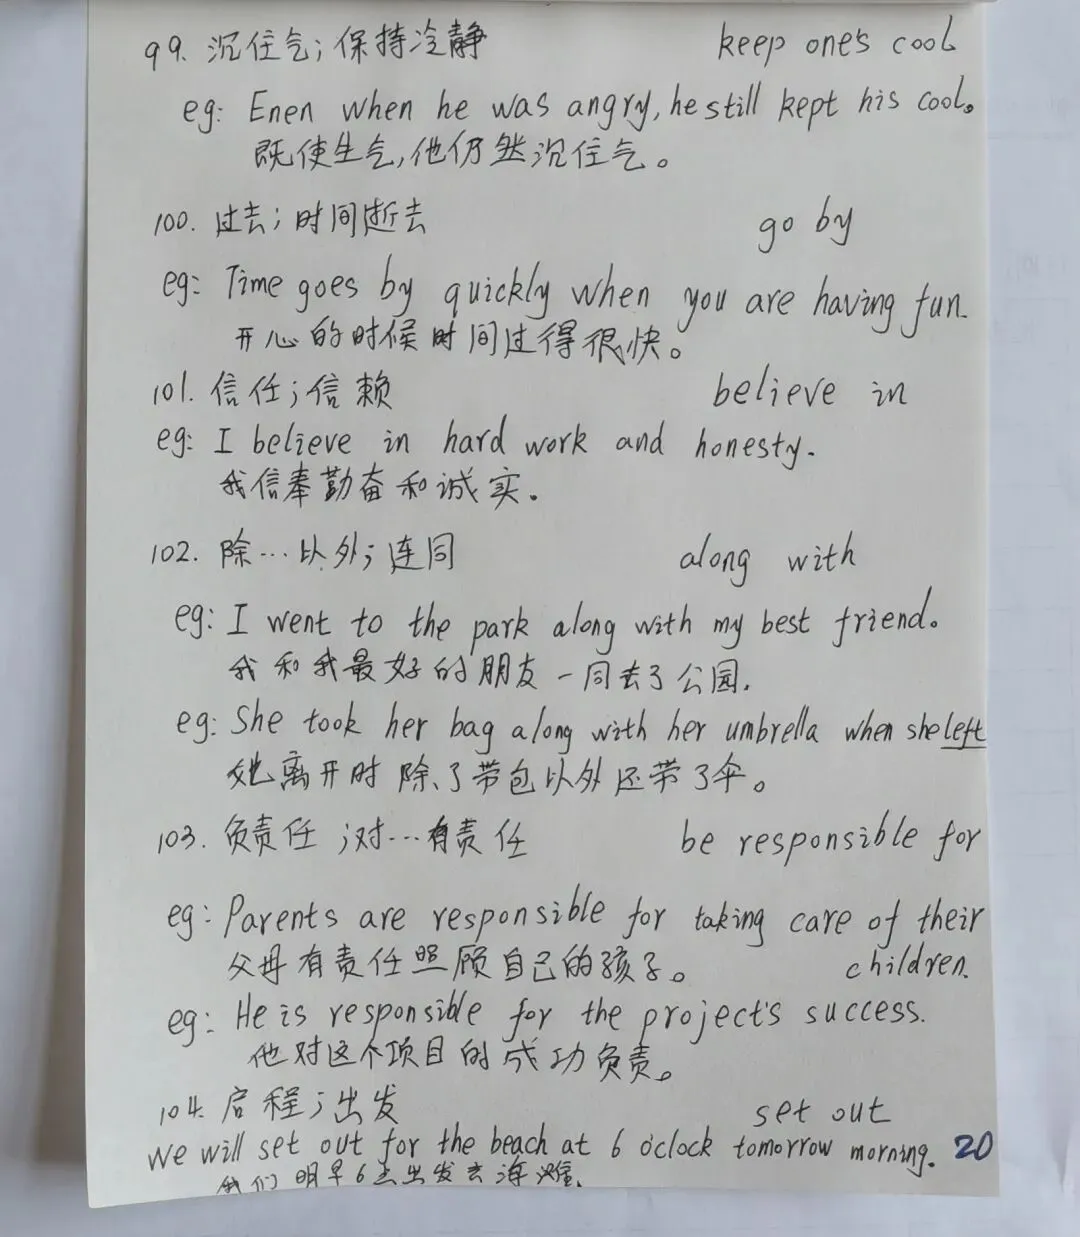 99. 沉住气；保持冷静 keep one's cool
eg: Enen when he was angry, he still kept his cool。
既使生气，他仍然沉住气。
100. 过去；时间逝去 go by
eg: Time goes by quickly when you are having fun.
开心的时候时间过得很快。
101. 信任；信赖 believe in
eg: I believe in hard work and honesty.
我信奉勤奋和诚实.
102. 除…以外；连同 along with
eg: I went to the park along with my best friend。
我和我最好的朋友一同去了公园.
eg: She took her bag along with her umbrella when she left
她离开时除了带包以外还带了伞。
103. 负责任；对…有责任 be responsible for
eg: Parents are responsible for taking care of their
父母有责任照顾自己的孩子。 children.
eg: He is responsible for the project's success.
他对这个项目的成功负责。
104. 启程；出发 set out
We will set out for the beach at 6 o'clock tomorrow morning. 20
我们明早6点出发去海滩.